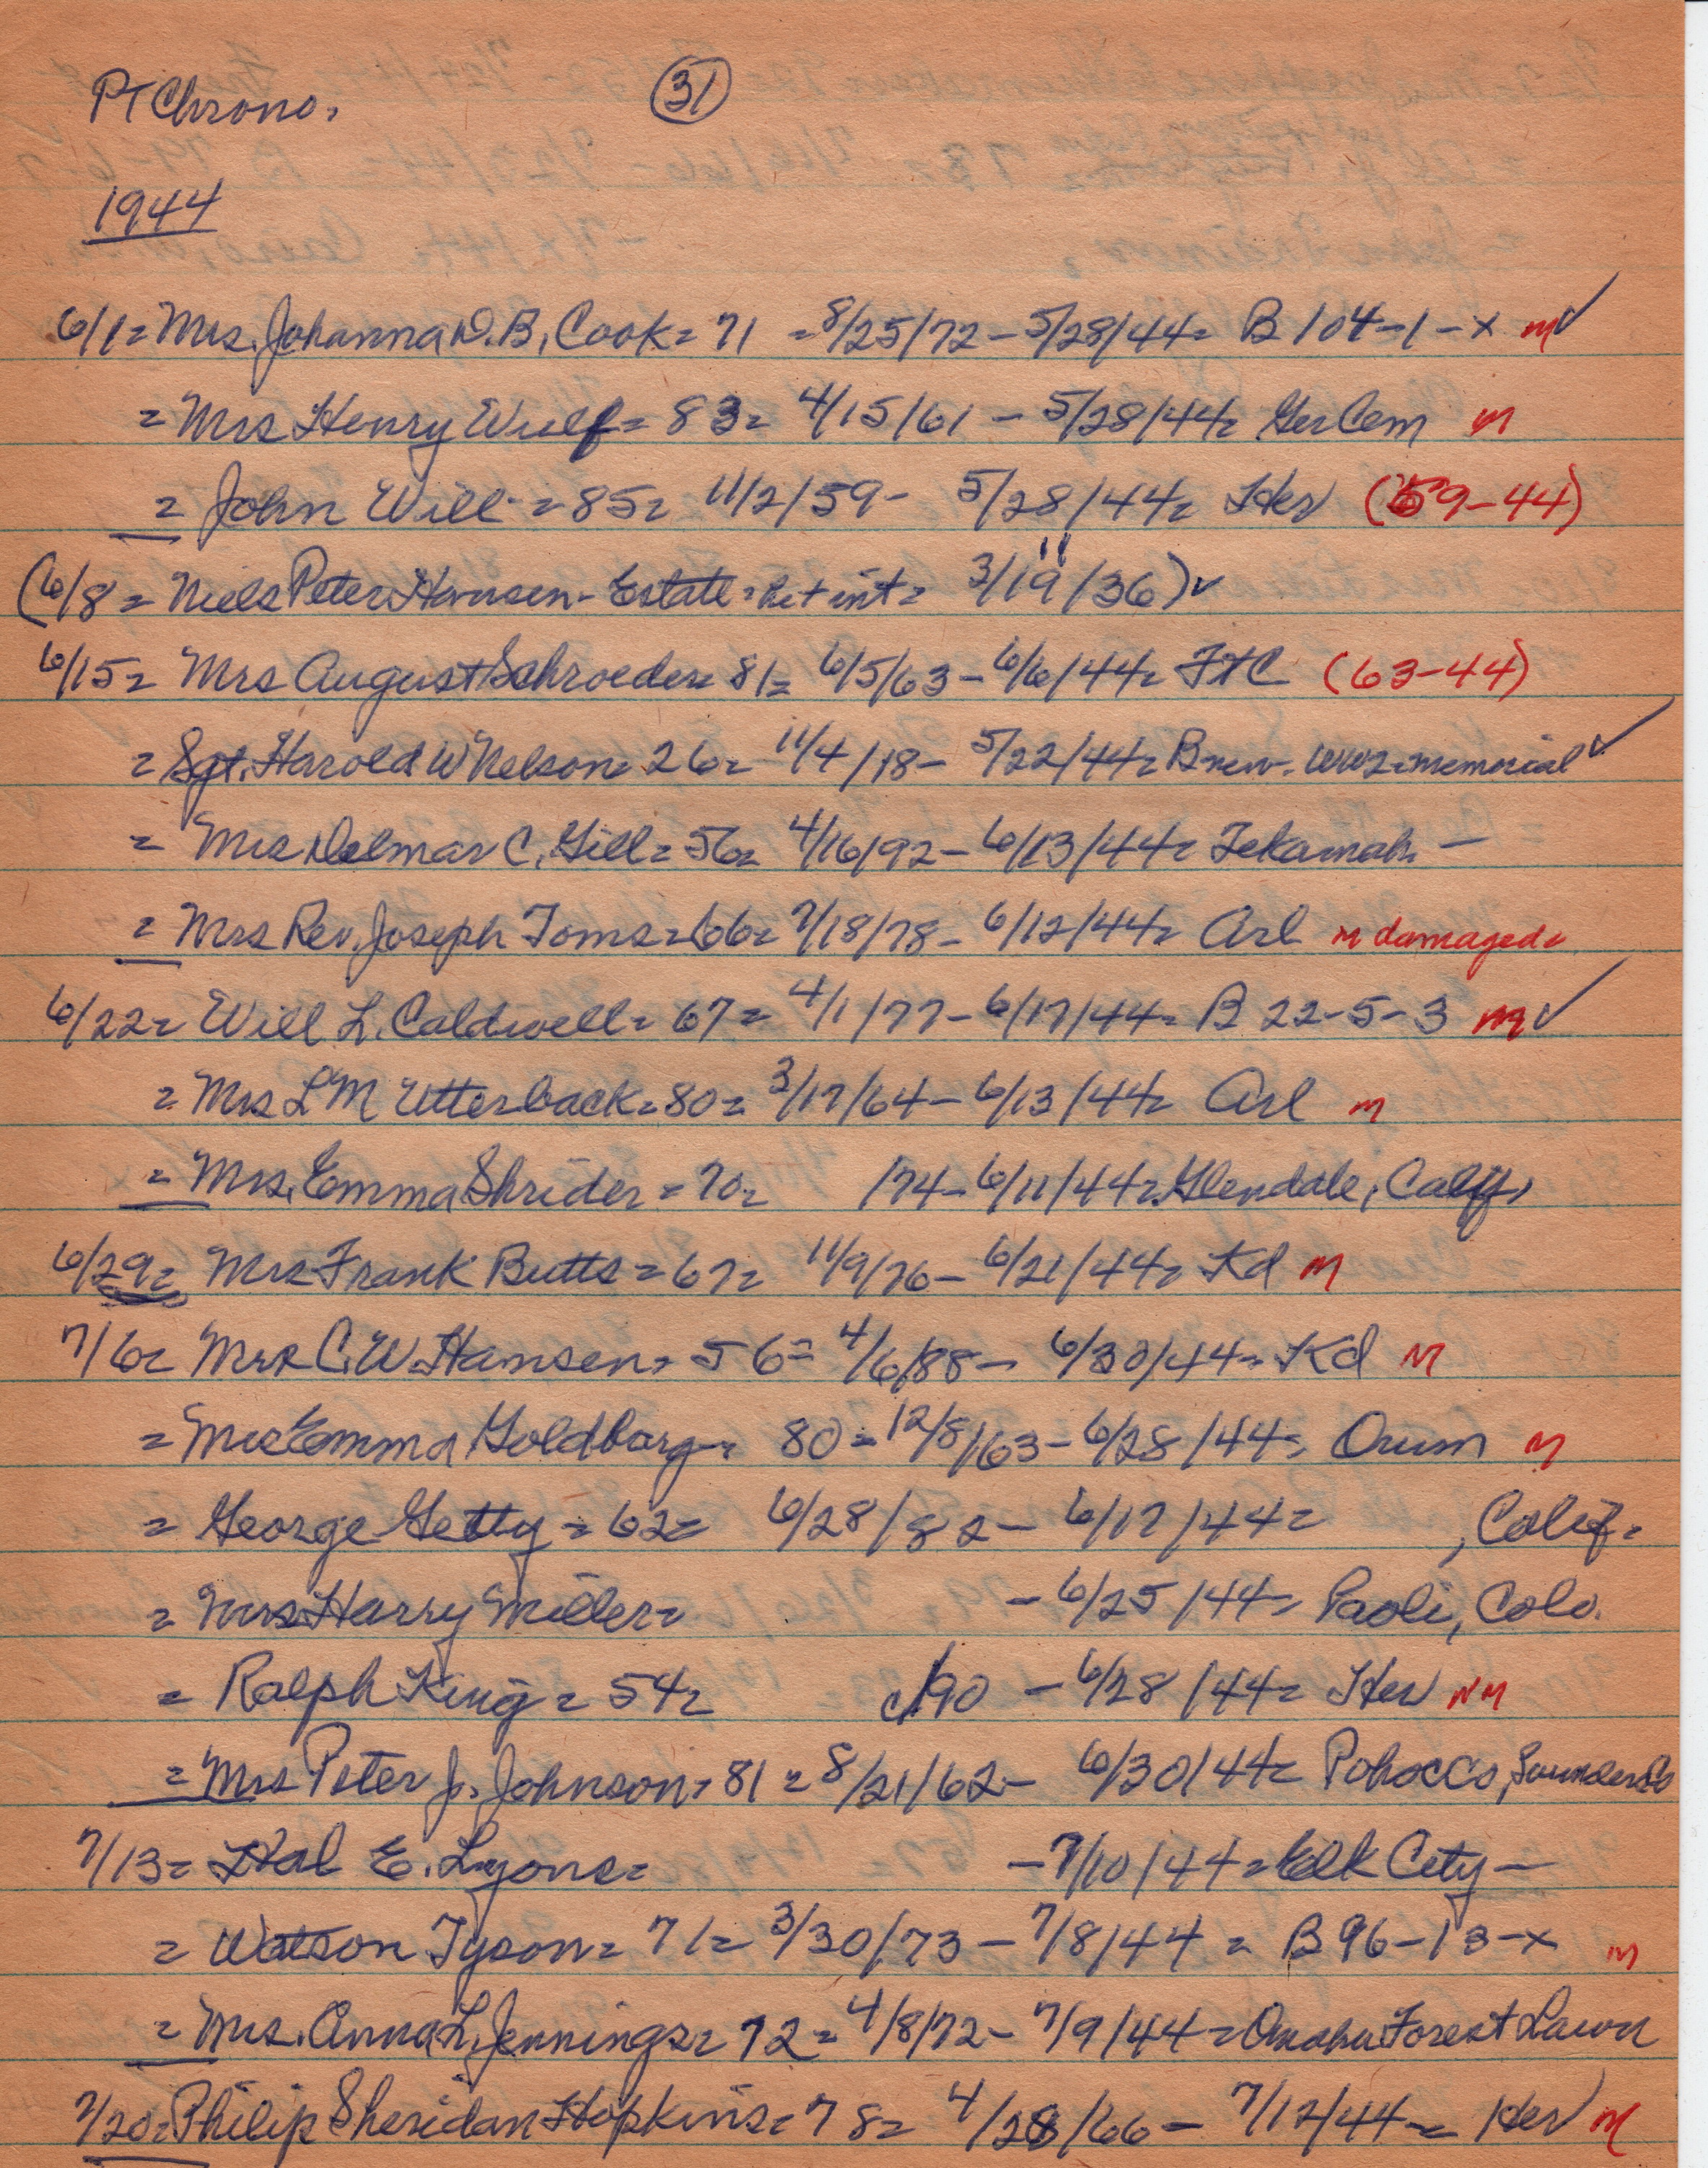 PT Chrono. 31
1944
6/1= Mrs. Johanna D. B. Cook= 71 =8/25/72-5/28/44= B 104-1-x m✓
= Mrs Henry Wulf= 83= 4/15/61 - 5/28/44= Ger Cem m
= John Will = 85= 11/2/59- 5/28/44= Her (59-44)
(6/8= Niels Peter Hansen- Estate= Ret int= 3/19/36)✓
6/15= Mrs August Schroeder= 81= 6/5/63-6/6/44= FtC (63-44)
= Sgt. Harold W Nelson= 26= 11/4/18- 5/22/44= B new- WW2=memorial ✓
= Mrs Delmar C. Gill= 56= 4/16/92-6/13/44= Tekamah -
= Mrs Rev. Joseph Toms=66= 7/18/78- 6/12/44= Arl m damaged=
6/22= Will L. Caldwell= 67= 4/1/77-6/17/44= B 22-5-3 m ✓
= Mrs L M Utterback=80= 3/17/64-6/13/44= Arl m
= Mrs. Emma Shrider =70= /74-6/11/44=Glendale, Calif,
6/29= Mrs Frank Butts=67= 11/9/76-6/21/44= Kd m
7/6= Mrs C. W. Hansen= 56= 4/6/88- 6/30/44= Kd m
= Mrs Emma Goldborg= 80=12/8/63-6/28/44= Orum m
= George Getty = 62= 6/28/82- 6/17/44= , Calif=
= Mrs Harry Miller= -6/25/44= Paoli, Colo.
= Ralph King= 54= c/90 -6/28/44= Her NM
= Mrs Peter J. Johnson= 81=8/21/62- 6/30/44= Pohocco, Saunders Co
7/13= Hal E. Lyons= -7/10/44=Elk City-
= Watson Tyson= 71= 3/30/73-7/8/44 = B 96-13-x m
= Mrs. Anna L. Jennings= 72=4/8/72-7/9/44=Omaha Forest Lawn
7/20= Philip Sheridan Hopkins= 78= 4/28/66- 7/12/44= Her m